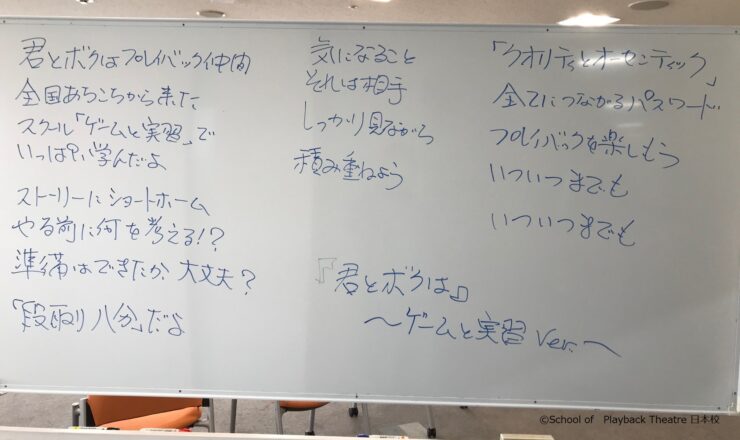 君とボクはプレイバック仲間
全国あちこちから来た
スクール「ゲームと実習」で
いっぱい学んだよ
ストーリーにショートホーム
やる前に何を考える!?
準備はできたか?大丈夫?
「段取り八分」だよ
気になること
それは相手
しっかり見ながら
積み重ねよう
「クオリティとオーセンティック」
全てにつながるパスワード
プレイバックを楽しもう
いついつまでも
いついつまでも
『君とボクは』
～ゲームと実習 Ver.～
©School of Playback Theatre 日本校